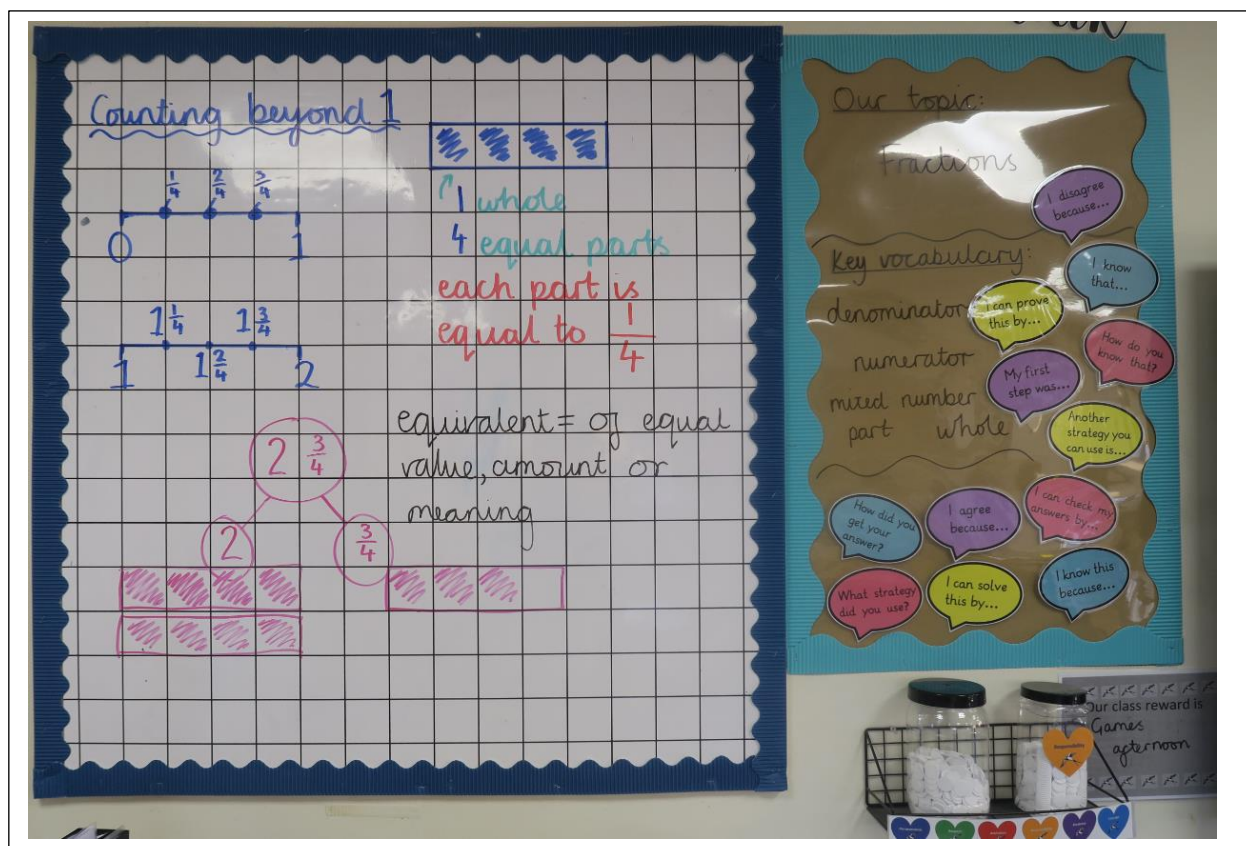 Counting beyond 1
1/4 2/4 3/4
0 1
1 1/4 1 3/4
1 1 2/4 2
1 whole
4 equal parts
each part is
equal to 1/4
equivalent = of equal
value, amount or
meaning
2 3/4
2 3/4
Our topic:
Fractions
Key vocabulary:
denominator
numerator
mixed number
part whole
I disagree
because...
I know
that...
I can prove
this by...
How do you
know that?
My first
step was...
Another
strategy you
can use is...
How did you
get your
answer?
I agree
because...
I can check my
answers by...
What strategy
did you use?
I can solve
this by...
I know this
because...
Our class reward is
Games
afternoon
Responsibility